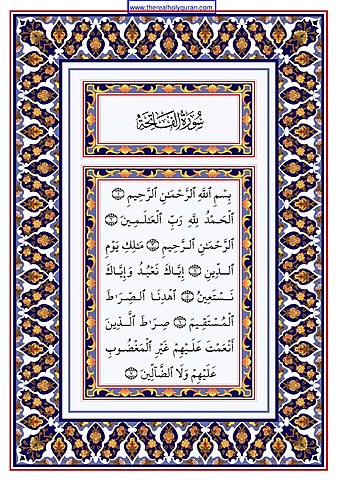 www.therealholyquran.com
سُورَةُ الفَاتِحَةِ
بِسْمِ اللَّهِ الرَّحْمَٰنِ الرَّحِيمِ ۝١
الْحَمْدُ لِلَّهِ رَبِّ الْعَالَمِينَ ۝٢
الرَّحْمَٰنِ الرَّحِيمِ ۝٣ مَالِكِ يَوْمِ
الدِّينِ ۝٤ إِيَّاكَ نَعْبُدُ وَإِيَّاكَ
نَسْتَعِينُ ۝٥ اهْدِنَا الصِّرَاطَ
الْمُسْتَقِيمَ ۝٦ صِرَاطَ الَّذِينَ
أَنْعَمْتَ عَلَيْهِمْ غَيْرِ الْمَغْضُوبِ
عَلَيْهِمْ وَلَا الضَّالِّينَ ۝٧